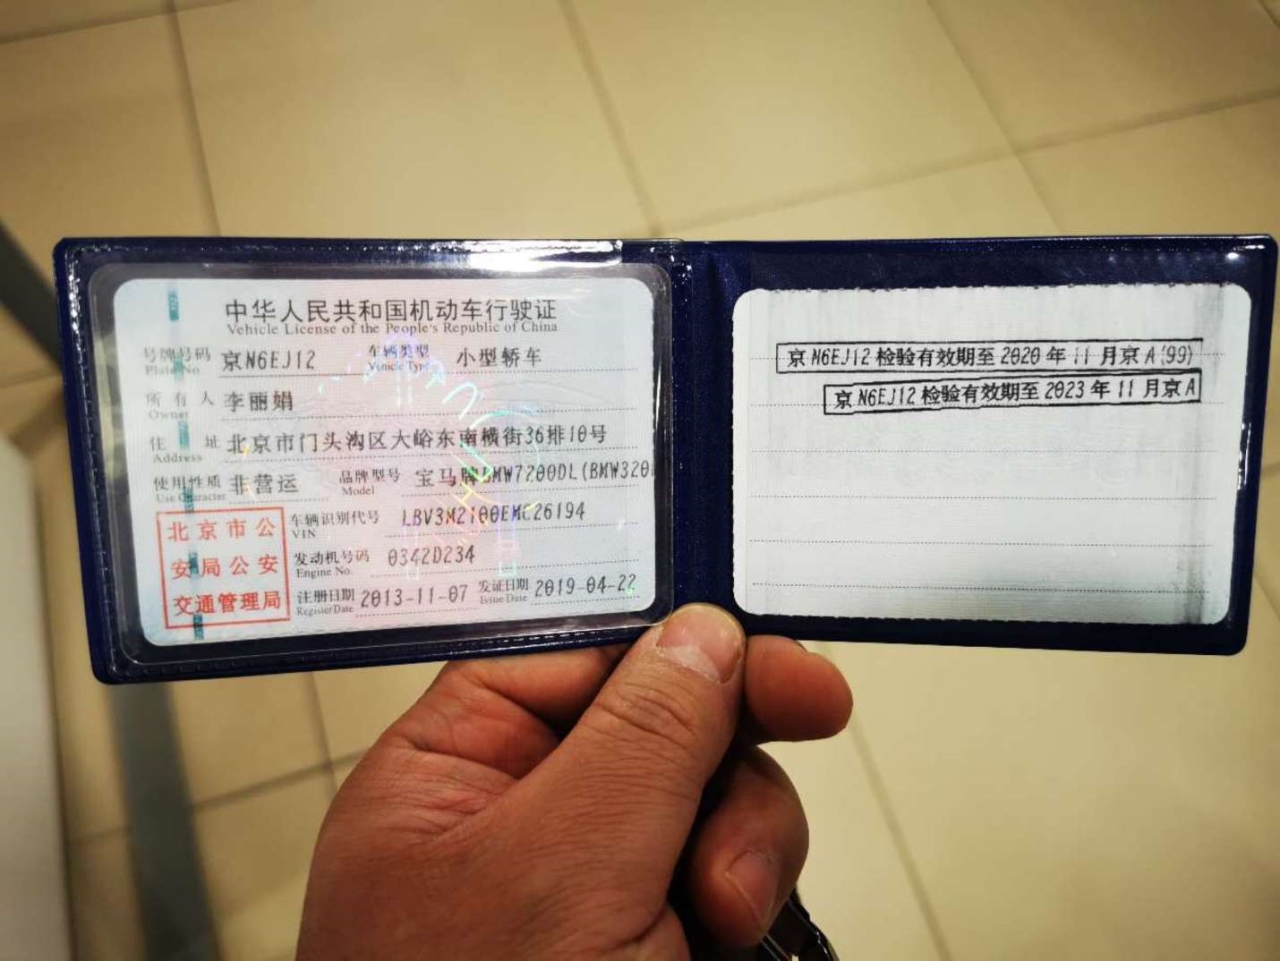 中华人民共和国机动车行驶证
Vehicle License of the People's Republic of China
号牌号码 京N6EJ12 车辆类型 小型轿车
Plate No Vehicle Type
所有人 李丽娟
Owner
住址 北京市门头沟区大峪东南横街36排10号
Address
使用性质 非营运 品牌型号 宝马牌BMW7200DL(BMW320
Use Character Model
北京市公
安局公安
交通管理局
车辆识别代号 LBV3M2100EMC26194
VIN
发动机号码 0342D234
Engine No.
注册日期 2013-11-07 发证日期 2019-04-22
Register Date Issue Date
京N6EJ12检验有效期至2020年11月京A(99)
京N6EJ12检验有效期至2023年11月京A